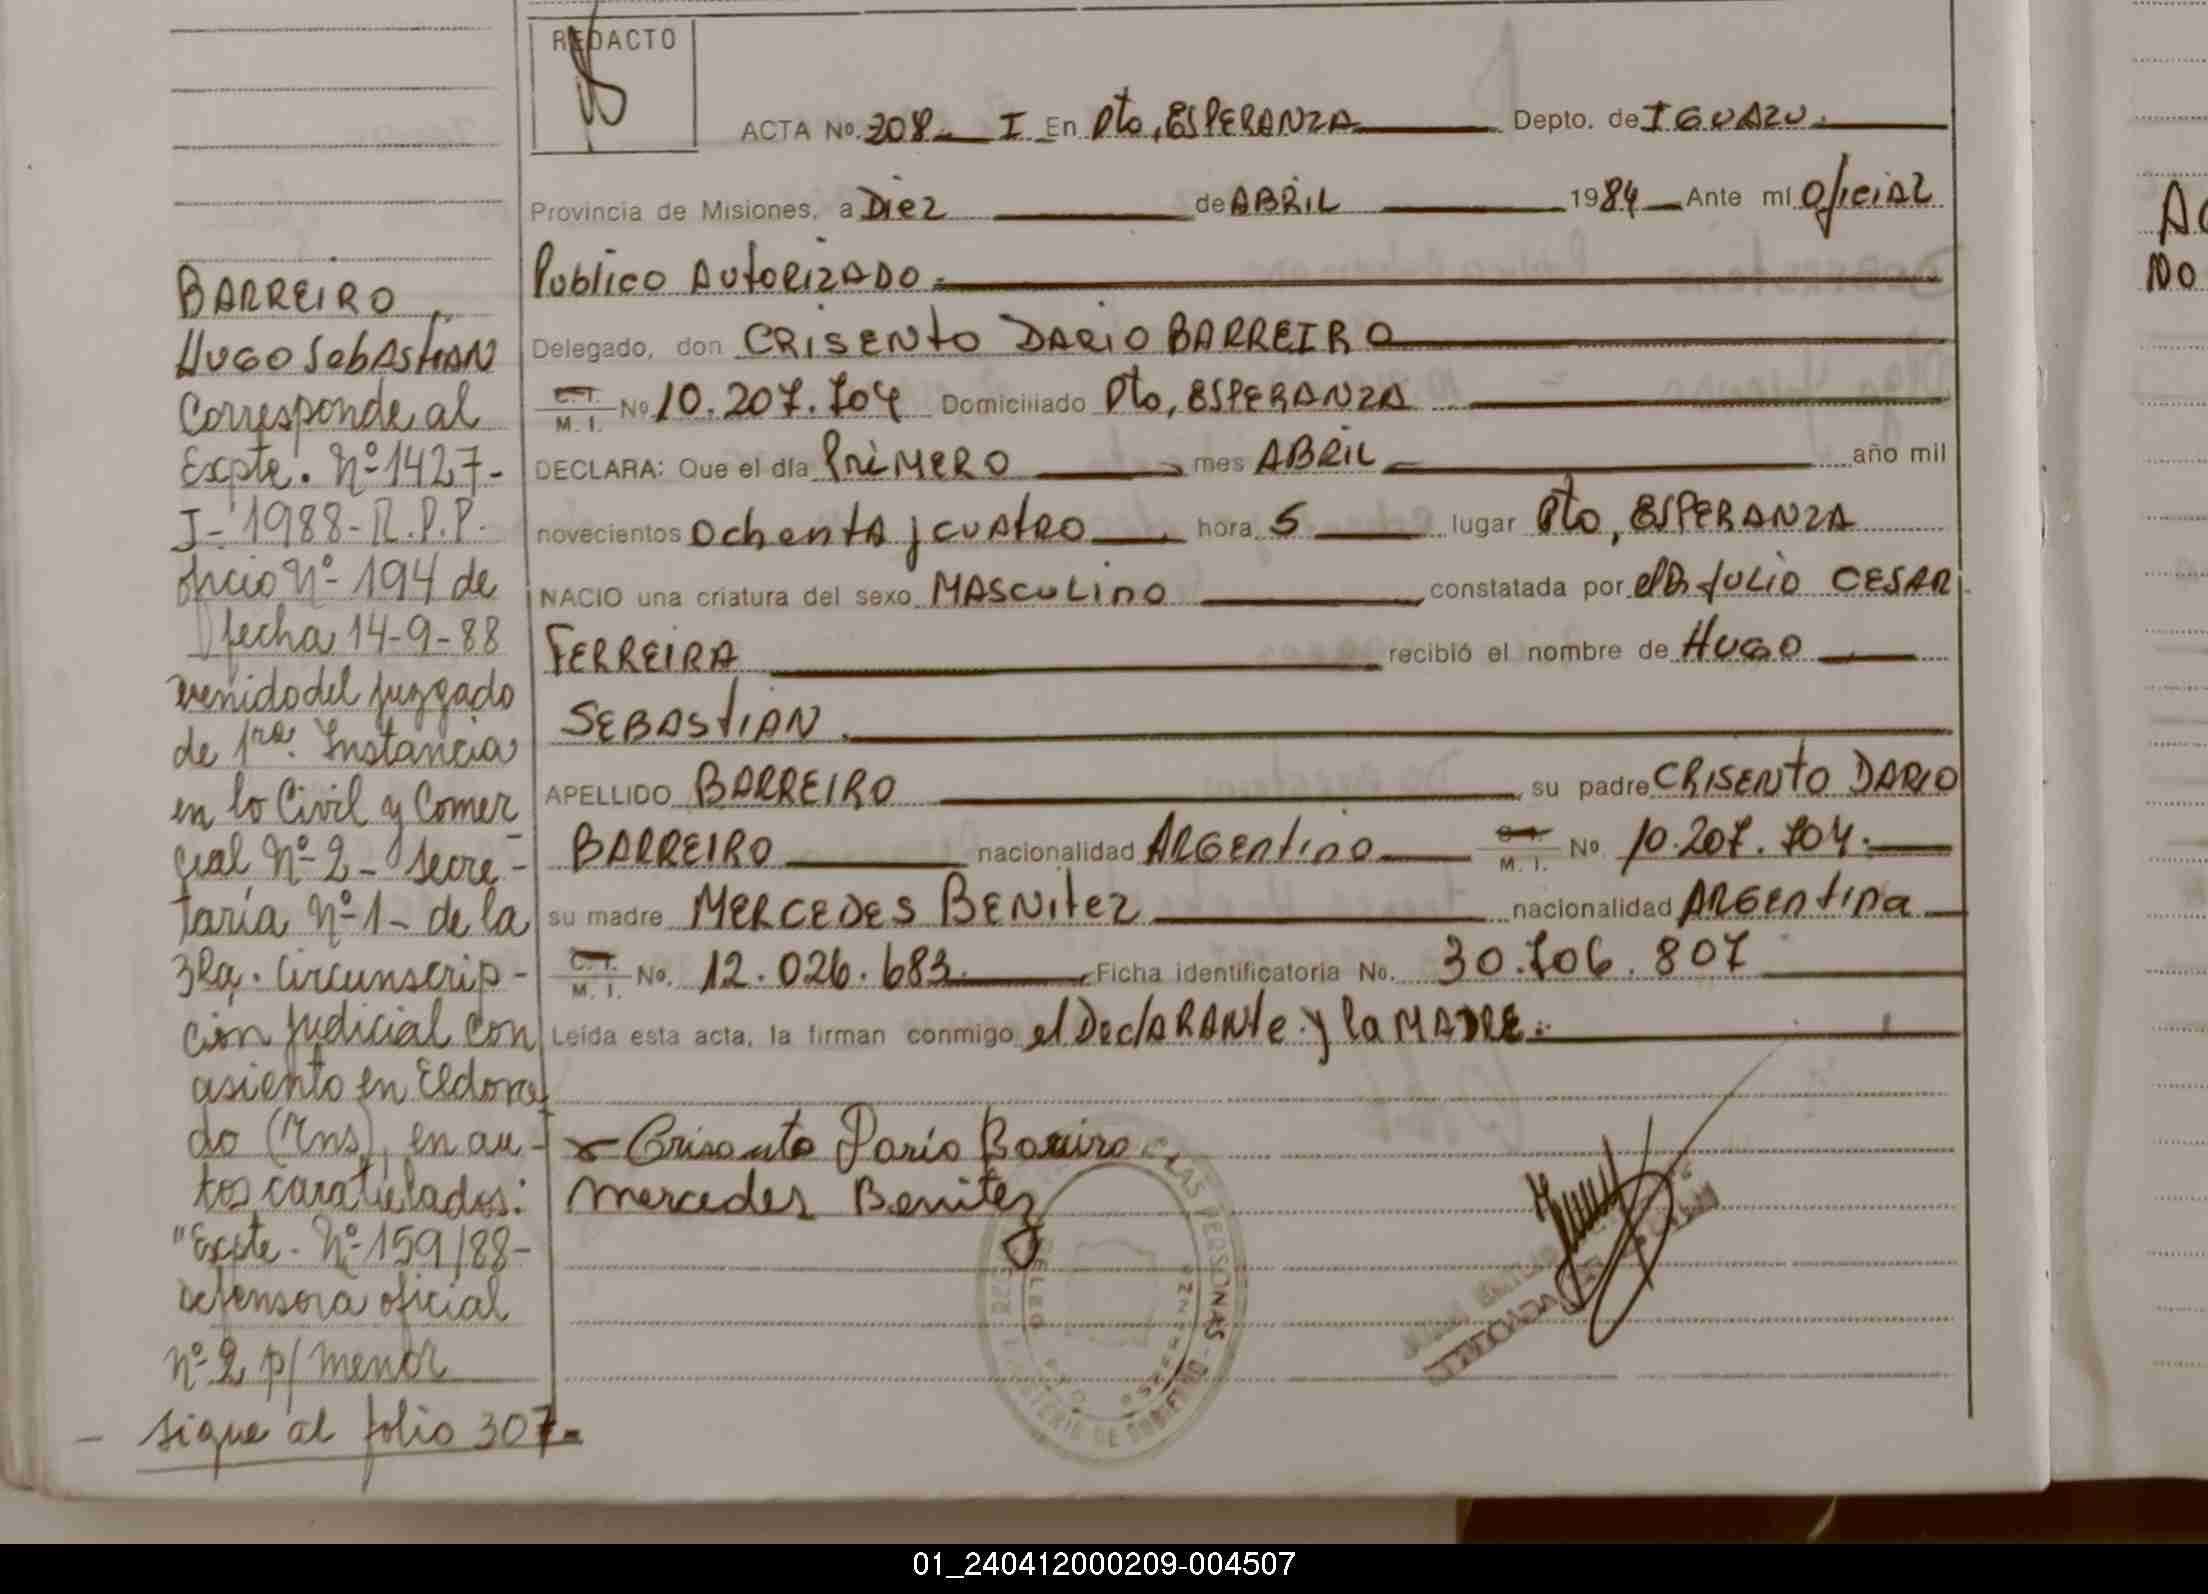 REDACTO
ACTA No. 208 I En Pto, ESPERANZA Depto. de IGUAZU.
Provincia de Misiones, a Diez de ABRIL 1984 Ante mí Oficial
Publico Autorizado.
Delegado, don CRISENTO DARIO BARREIRO
C.I. M. I. No 10.207.704 Domiciliado Pto, ESPERANZA
DECLARA: Que el día PRIMERO mes ABRIL año mil
novecientos ochenta y cuatro hora 5 lugar Pto, ESPERANZA
NACIO una criatura del sexo MASCULINO constatada por el Dr JULIO CESAR
FERREIRA recibió el nombre de HUGO
SEBASTIAN.
APELLIDO BARREIRO su padre CRISENTO DARIO
BARREIRO nacionalidad ARGENTINO C.I. M. I. No 10.207.704.
su madre MERCEDES BENITEZ nacionalidad ARGENTINA
C.I. M. I. No. 12.026.683. Ficha identificatoria No. 30.706.807
Leída esta acta, la firman conmigo el DeclARANte y la MADRE.
Crisanto Dario Barreiro
Mercedes Benitez
BARREIRO
HUGO SebAStiAN
Corresponde al
Expte. Nº 1427-
J-1988-R.P.P.
oficio Nº 194 de
fecha 14-9-88
venido del juzgado
de 1ra. Instancia
en lo Civil y Comer
cial Nº 2 - Secre-
taría Nº 1 - de la
3Ra. Circunscrip-
ción judicial con
asiento en Eldora
do (Mns), en au-
tos caratulados:
"Expte. Nº 159/88-
defensora oficial
nº 2 p/ menor
- sigue al folio 307-
LAS PERSONAS
MINISTERIO DE GOBIERNO
AC
NO
01_240412000209-004507